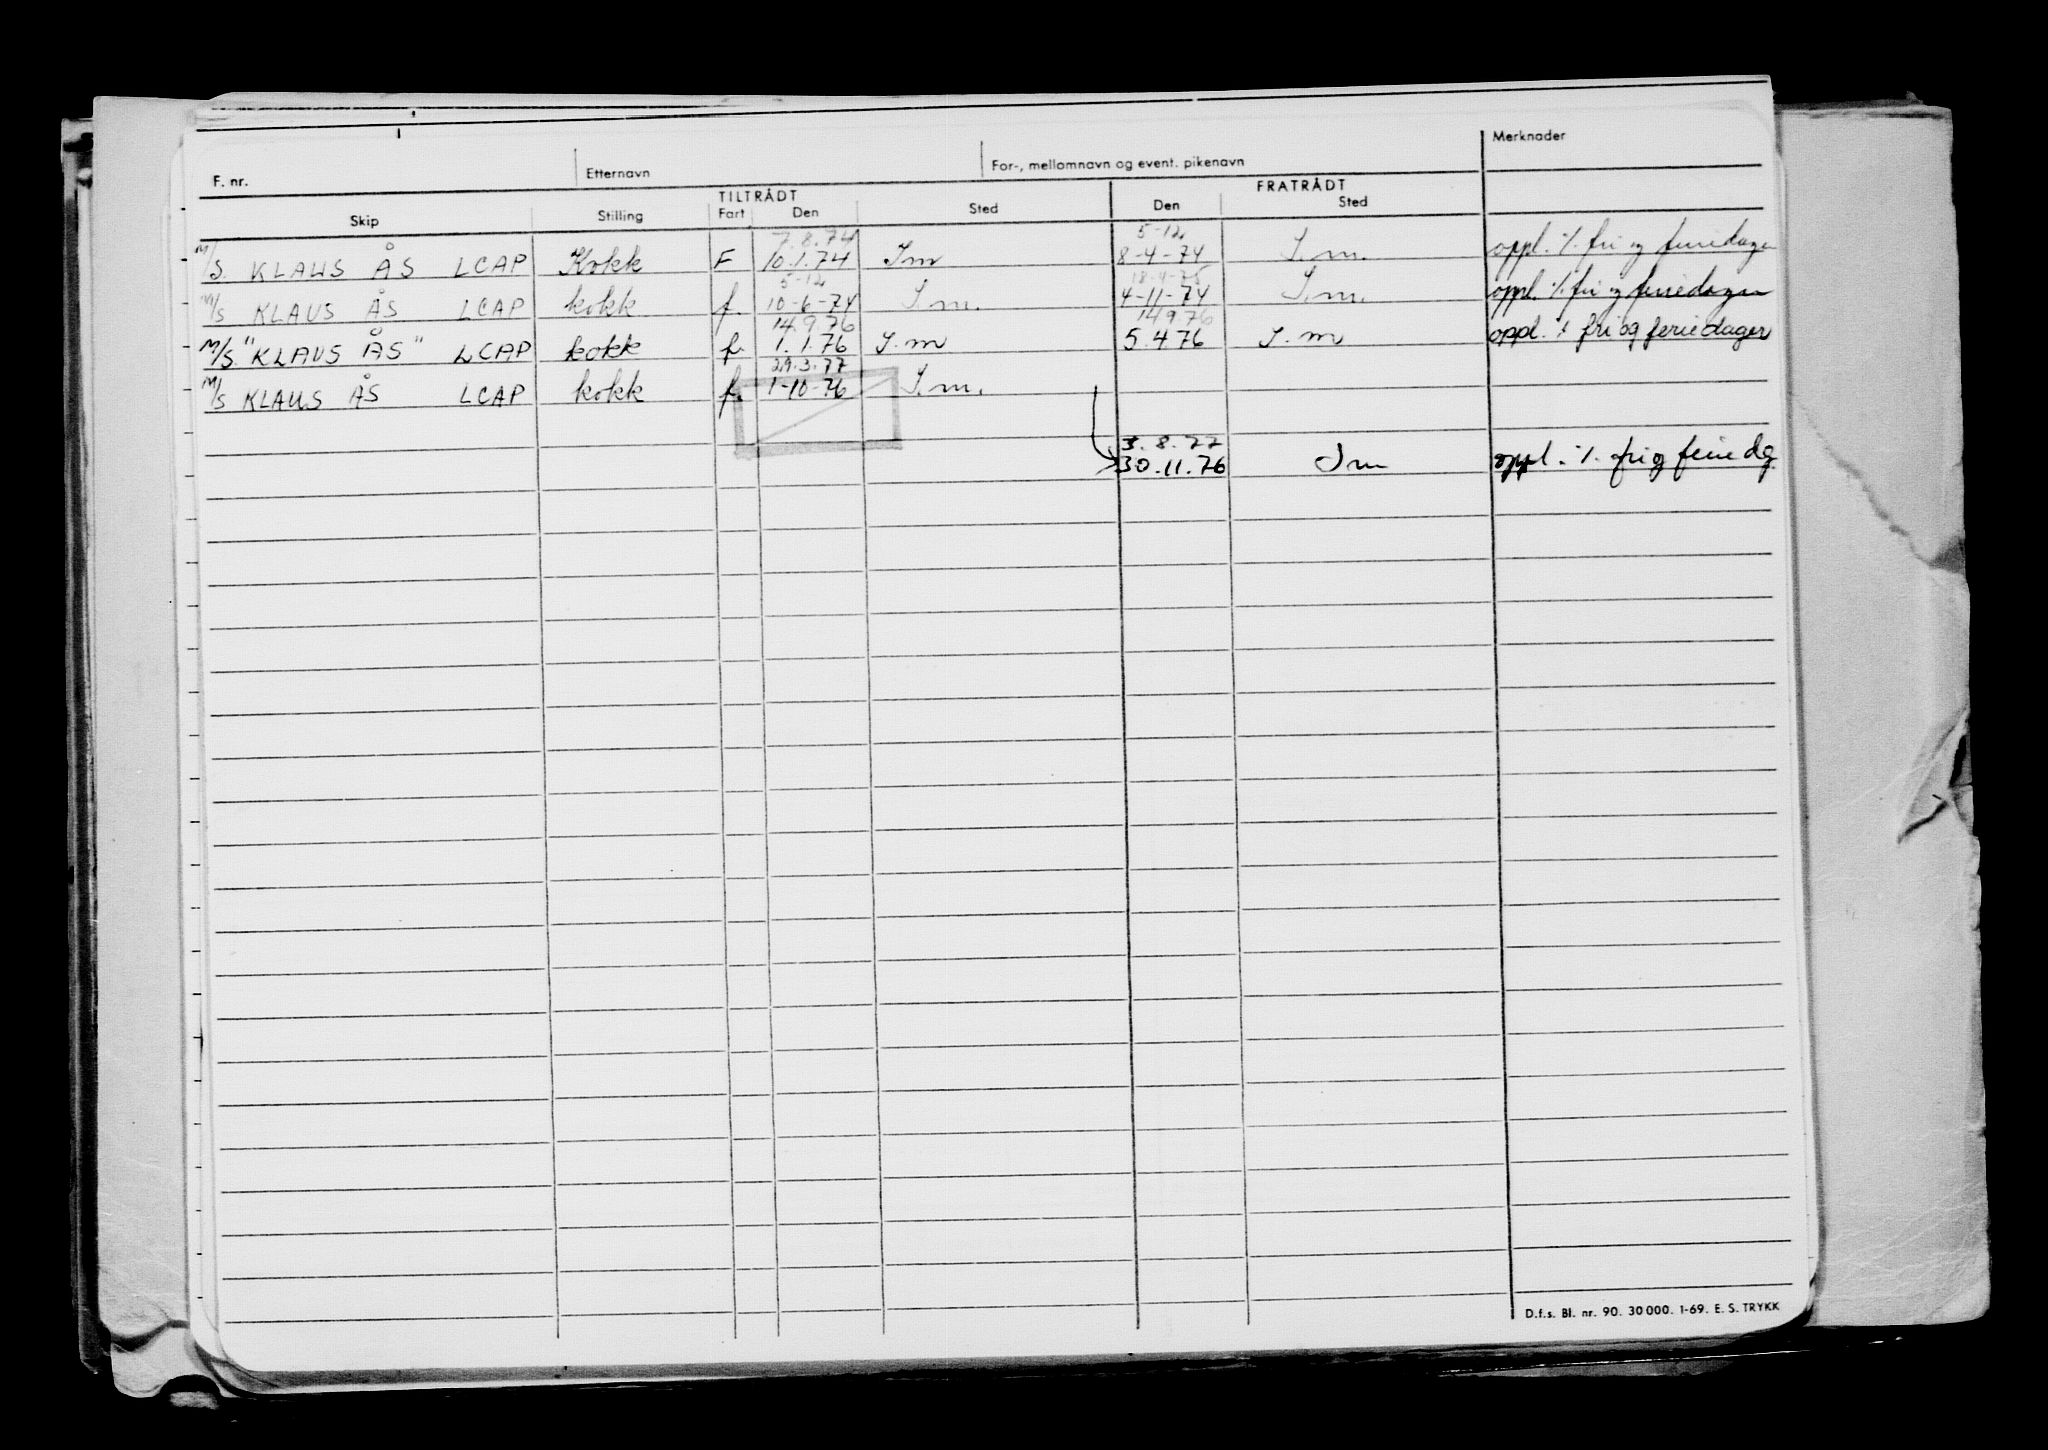 Merknader
F. nr. Etternavn For-, mellomnavn og event. pikenavn
TILTRÅDT FRATRÅDT
Skip Stilling Fart Den Sted Den Sted
7.8.74 5-12
M/S. KLAUS ÅS LCAP Kokk F 10.1.74 Im 8-4-74 I.m. oppl. ./. fri og feriedager
5-12 18-4-75
M/S KLAUS ÅS LCAP kokk f. 10-6-74 I.m. 4-11-74 I.m. oppl. ./. fri og feriedager
14.9.76 14976
M/S "KLAUS ÅS" LCAP kokk f. 1.1.76 I.m 5.476 I.m oppl. ./. fri og feriedager
29.3.77
M/S KLAUS ÅS LCAP kokk f. 1-10-76 I.m.
3.8.77
30.11.76 Im oppl. ./. fri og feriedg.
D.f.s. Bl. nr. 90. 30 000. 1-69. E. S. TRYKK